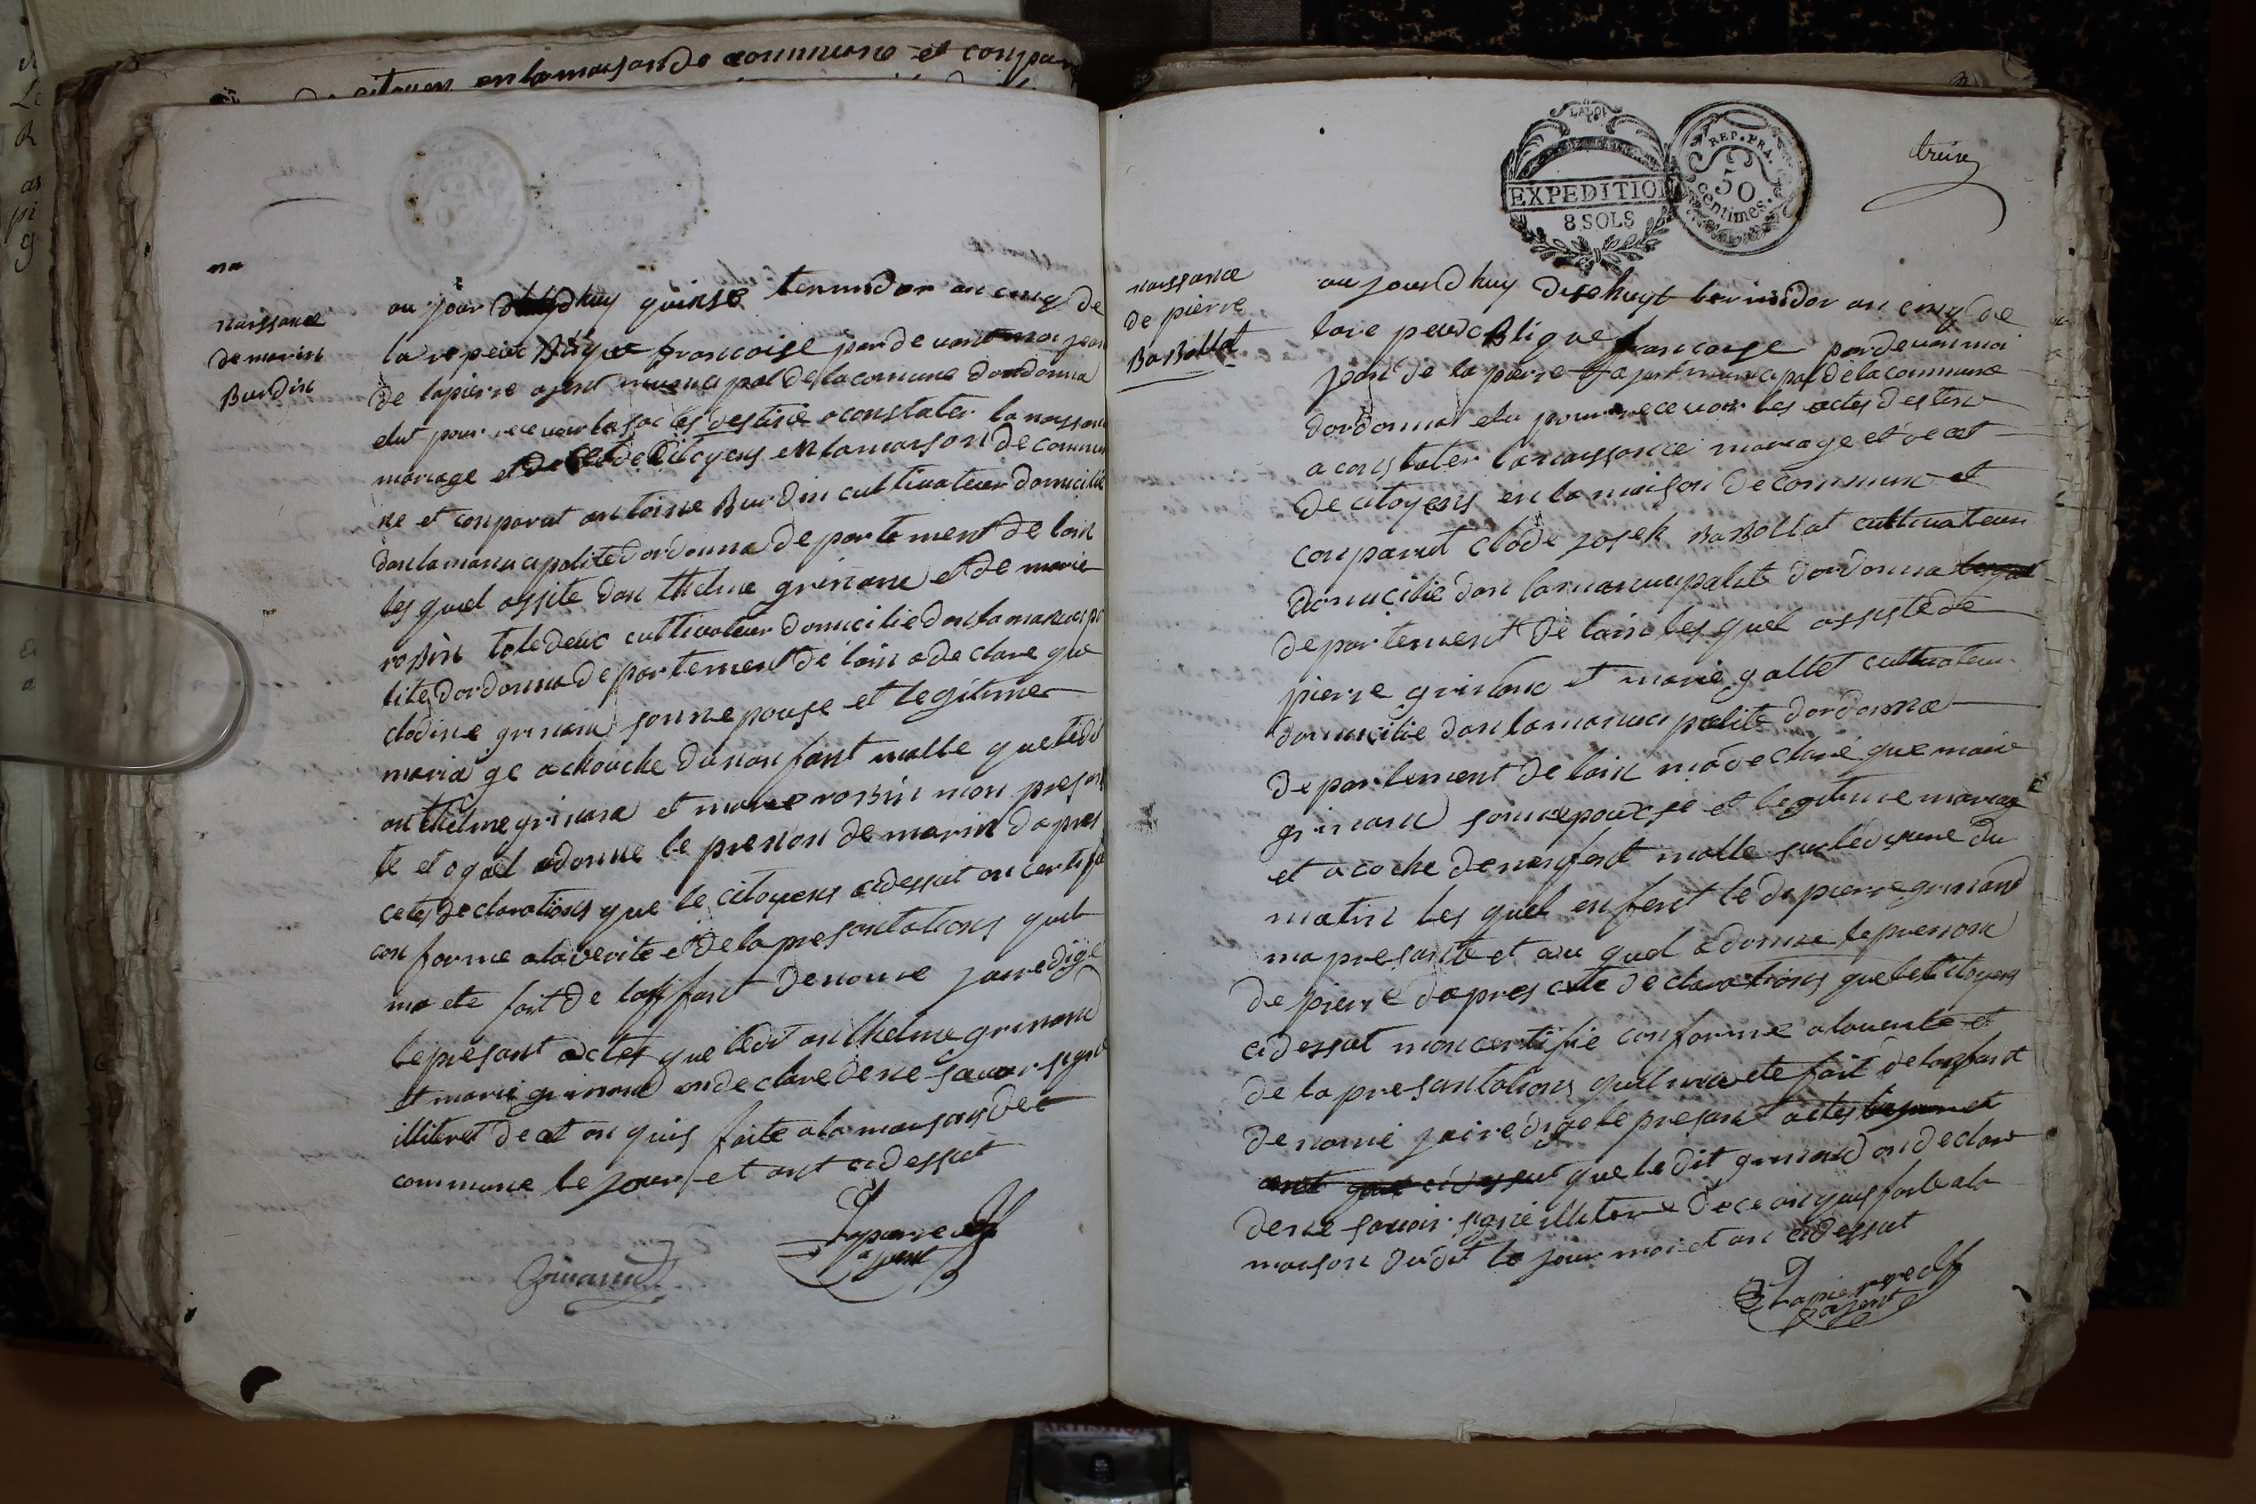 citoyens en la maison de commune et conpar
naissance
de marin
Burdin
au jour dhuy quinse termidor an cinq de
la repeublique francoise par de vant moi jean
de lapierre ajent municipal de la comune dordonna
elut pour recevoir les actes destiné a constater la naissance
mariage et de citoyens en la maison de commu
ne et conparut antoine Burdin cultivateur domicilié
dan la manucipalité dordonna departement de lain
les quel assite dan thelme grinand et de marie
robin tole deux cultivateur domicilié dan la manucipa
lité dordonna departement de lain a declare que
clodine grinand sonne pouse et legitime
maria ge achouche dunanfant malle queledit
anthelme grinand et marie robin mon presan
te et oquel adonne le prenon de marin dapres
cete declarations que le citoyens cidessut on certifie
con forme a la verite et de la presantations quil
ma ete fait de lanffant denome jairedigé
le présant actes que ledit anthelme grinand
et marie grinand on declare dene savoir signé
illiteret de at on quis faite a la maison de
commune le jour et ant cidessut
Lapierre
ajent
Grinand
LA LOI
EXPEDITION
8 SOLS
REP. FRA.
50
centimes.
treise
naissance
de pierre
BaBollat
au jourd huy disehuyt termidor an cinq de
lare peudblique francoise par devan moi
jean de la pierre ajent municipal de la commune
dordonna elu pour recevoir les actes destiné
a constater la naissance mariage et decet
de citoyens en la maison de commune et
conparut clode josek BaBollat cultivateur
domicilié dan la manucipalité dordonna
departement de lain les quel assisté de
pierre grinand et marie gallet cultivateur
domicilié dan la manuci palité dordonna
departement de lain ma declaré que marie
grinand sonnepouse et legitime mariage
et acoche denenfent malle
matin les quel enfent le di pierre grinand
ma presanté et au quel adonne le prenom
de pierre dapres cete declarations que le citoyens
cidessut mon certifie conforme a la verité et
de la presantations quil ma ete fait de lanfant
denomé jairedigé le presant actes
que le dit grinand on declare
dene savoir signé illiteré dece on quis faite a la
maison dudit le jour moi et an cidessut
Lapierre
ajent